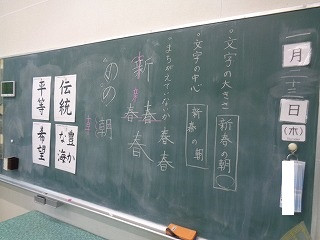 一月二十三日(水)
・文字の大きさ
新春の朝
・文字の中心
新春の朝
・まちがえていないか
春春
新春春
春
のの
朝
伝統
豊かな海
平等
希望